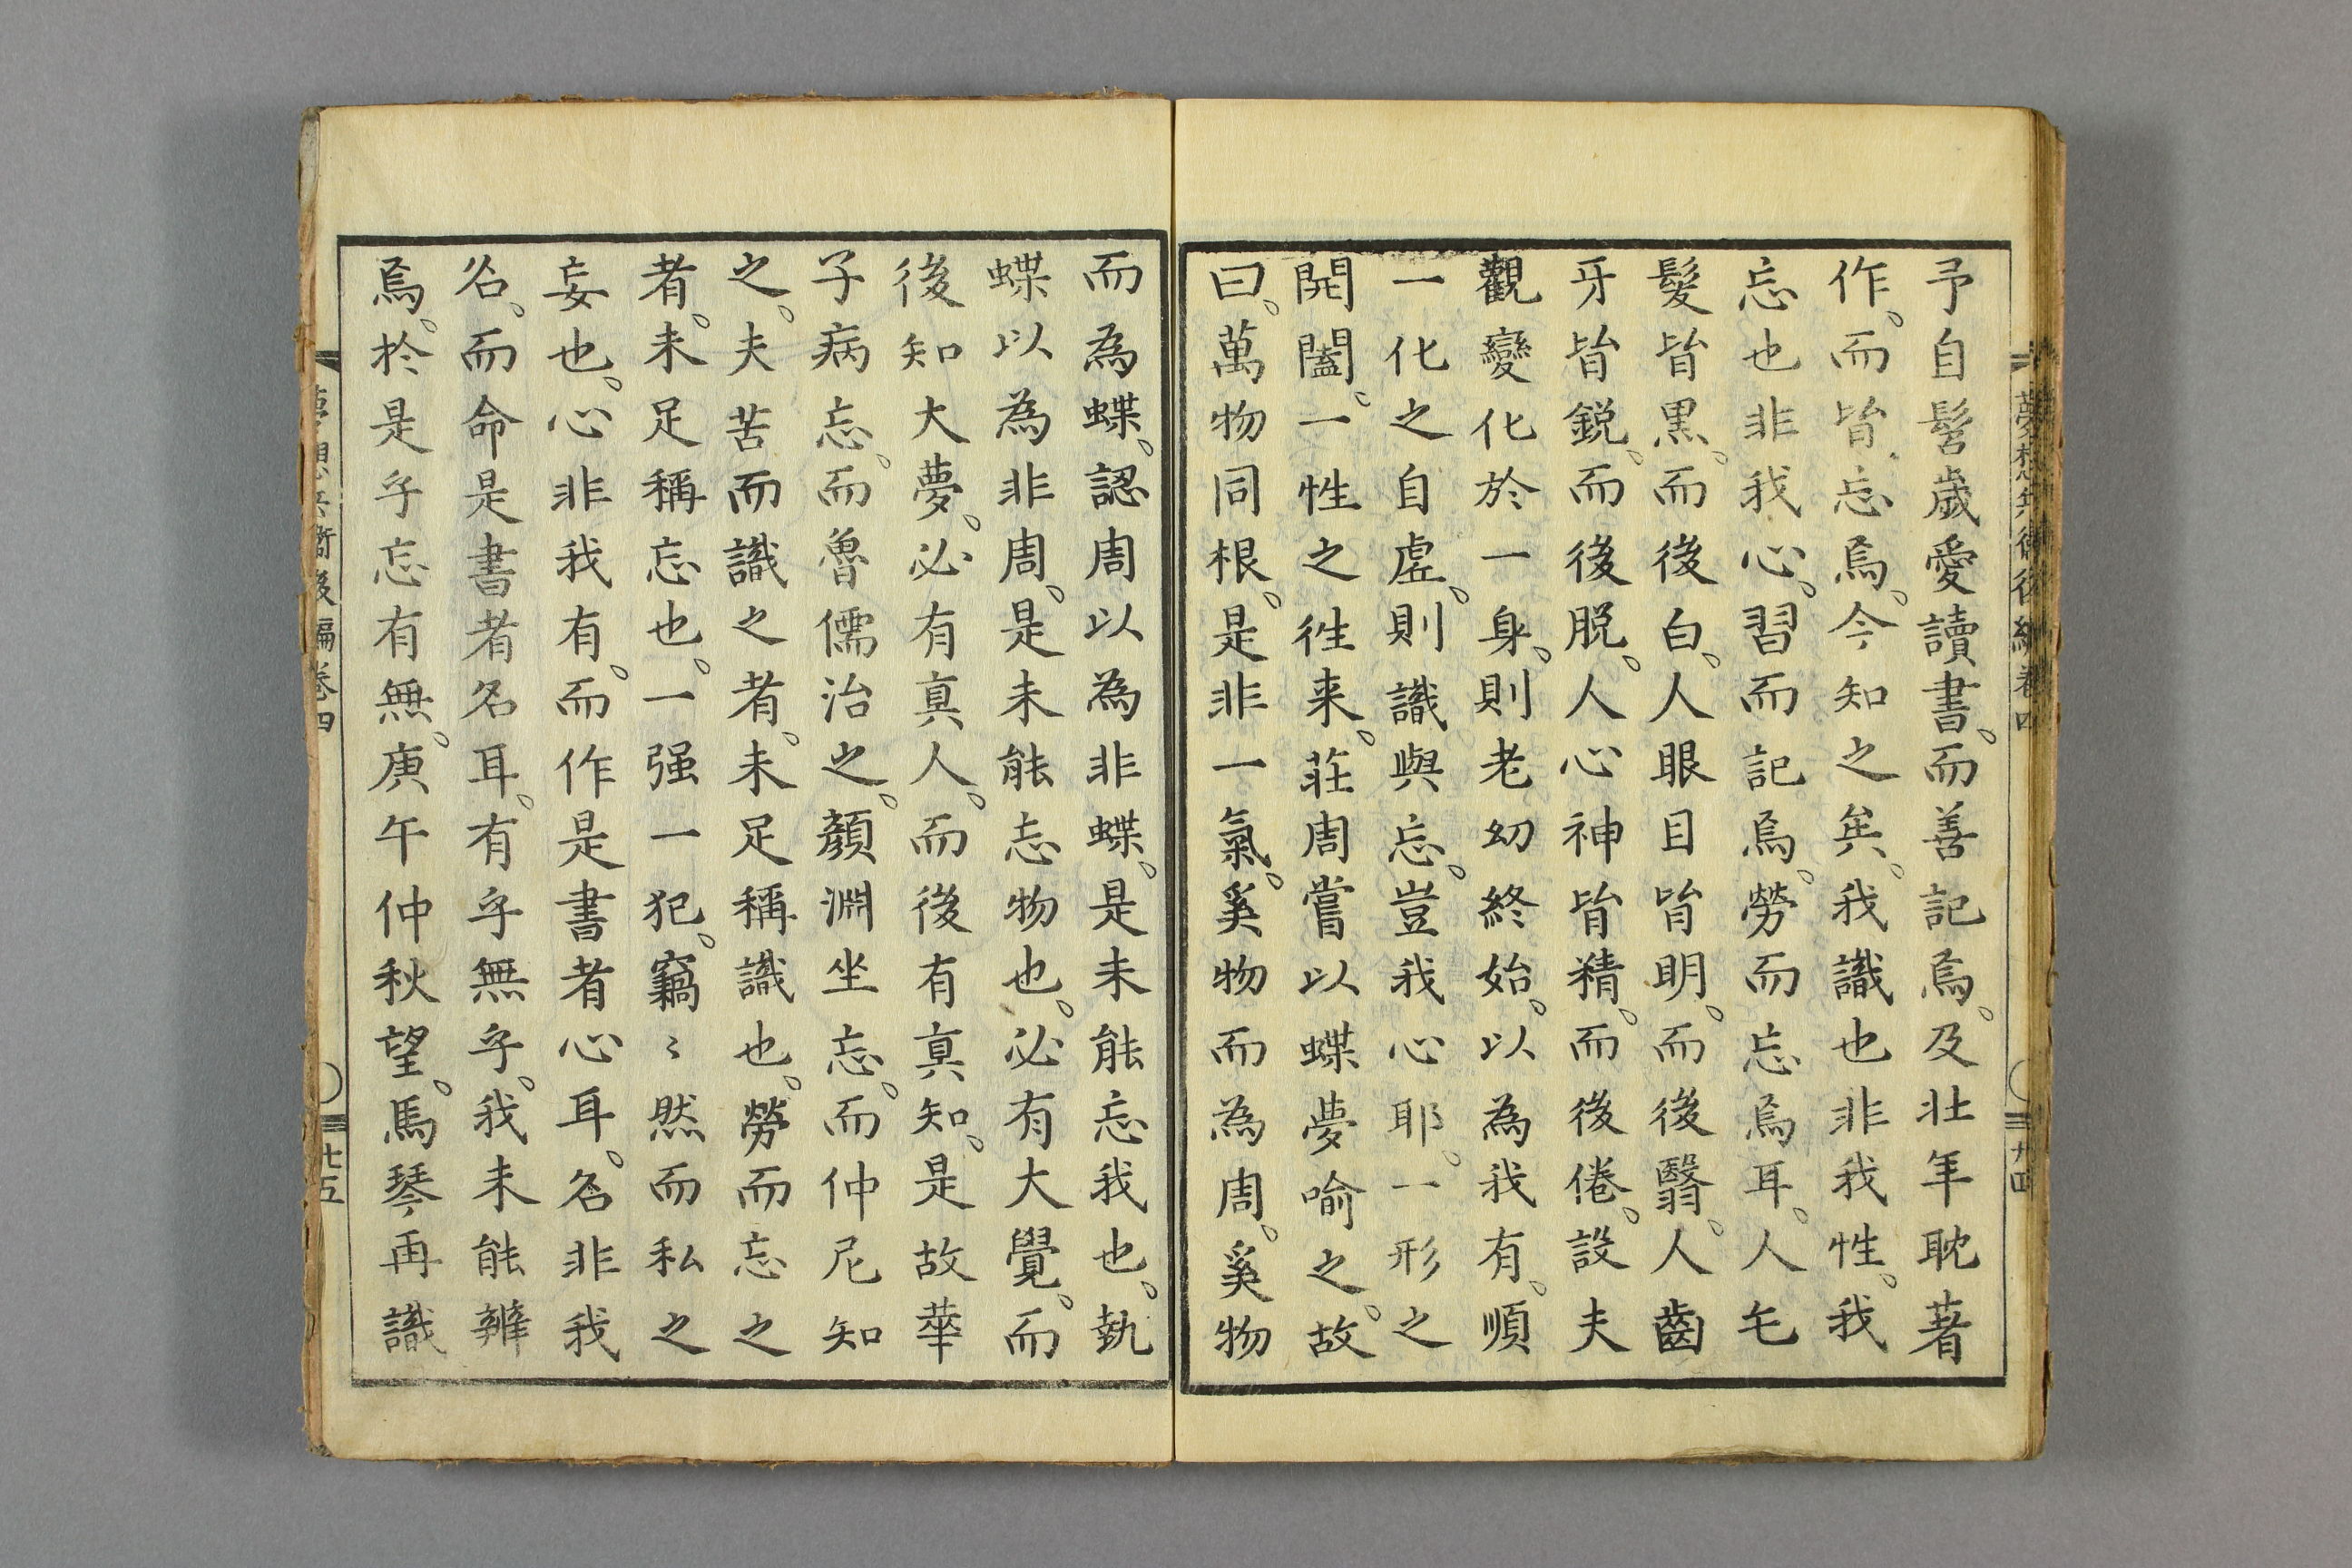 夢想兵衛後編卷四
廿四
予自髫歲愛讀書。而善記焉。及壯年耽著
作。而皆忘焉。今知之矣。我識也非我性。我
忘也非我心。習而記焉。勞而忘焉耳。人毛
髮皆黒。而後白。人眼目皆明。而後翳。人齒
牙皆鋭。而後脱。人心神皆精。而後倦。設夫
觀變化於一身。則老幼終始。以為我有。順
一化之自虛。則識與忘。豈我心耶。一形之
開闔。一性之往来。莊周嘗以蝶夢喻之。故
曰。萬物同根。是非一氣。奚物而為周。奚物
而為蝶。認周以為非蝶。是未能忘我也。執
蝶以為非周。是未能忘物也。必有大覺。而
後知大夢。必有真人。而後有真知。是故華
子病忘。而魯儒治之。顏淵坐忘。而仲尼知
之。夫苦而識之者。未足稱識也。勞而忘之
者。未足稱忘也。一强一犯。竊〻然而私之
妄也。心非我有。而作是書者心耳。名非我
名。而命是書者名耳。有乎無乎。我未能辨
焉。於是乎忘有無。庚午仲秋望。馬琴再識
夢想兵衛後編卷四
廿五